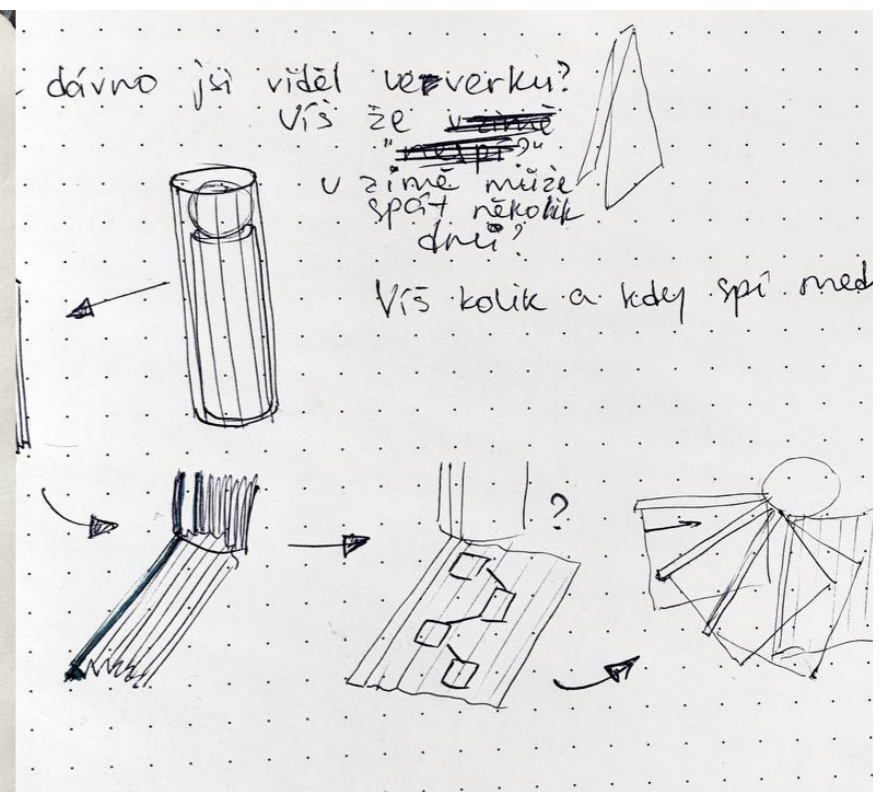 dávno jsi viděl veverku?
Víš že v zimě
"nespí?"
v zimě může
spát několik
dní?
Víš kolik a kdy spí med
?